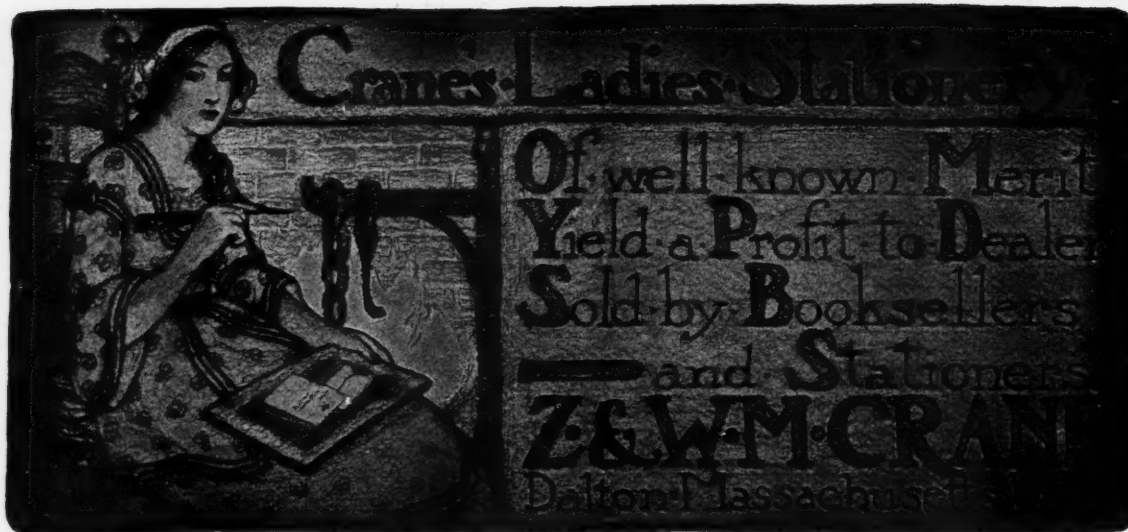 Crane's·Ladies·Stationery·
Of·well·known·Merit
Yield·a·Profit to·Dealers
Sold·by·Booksellers
and·Stationers
Z·&·W·M·CRANE
Dalton·Massachusetts